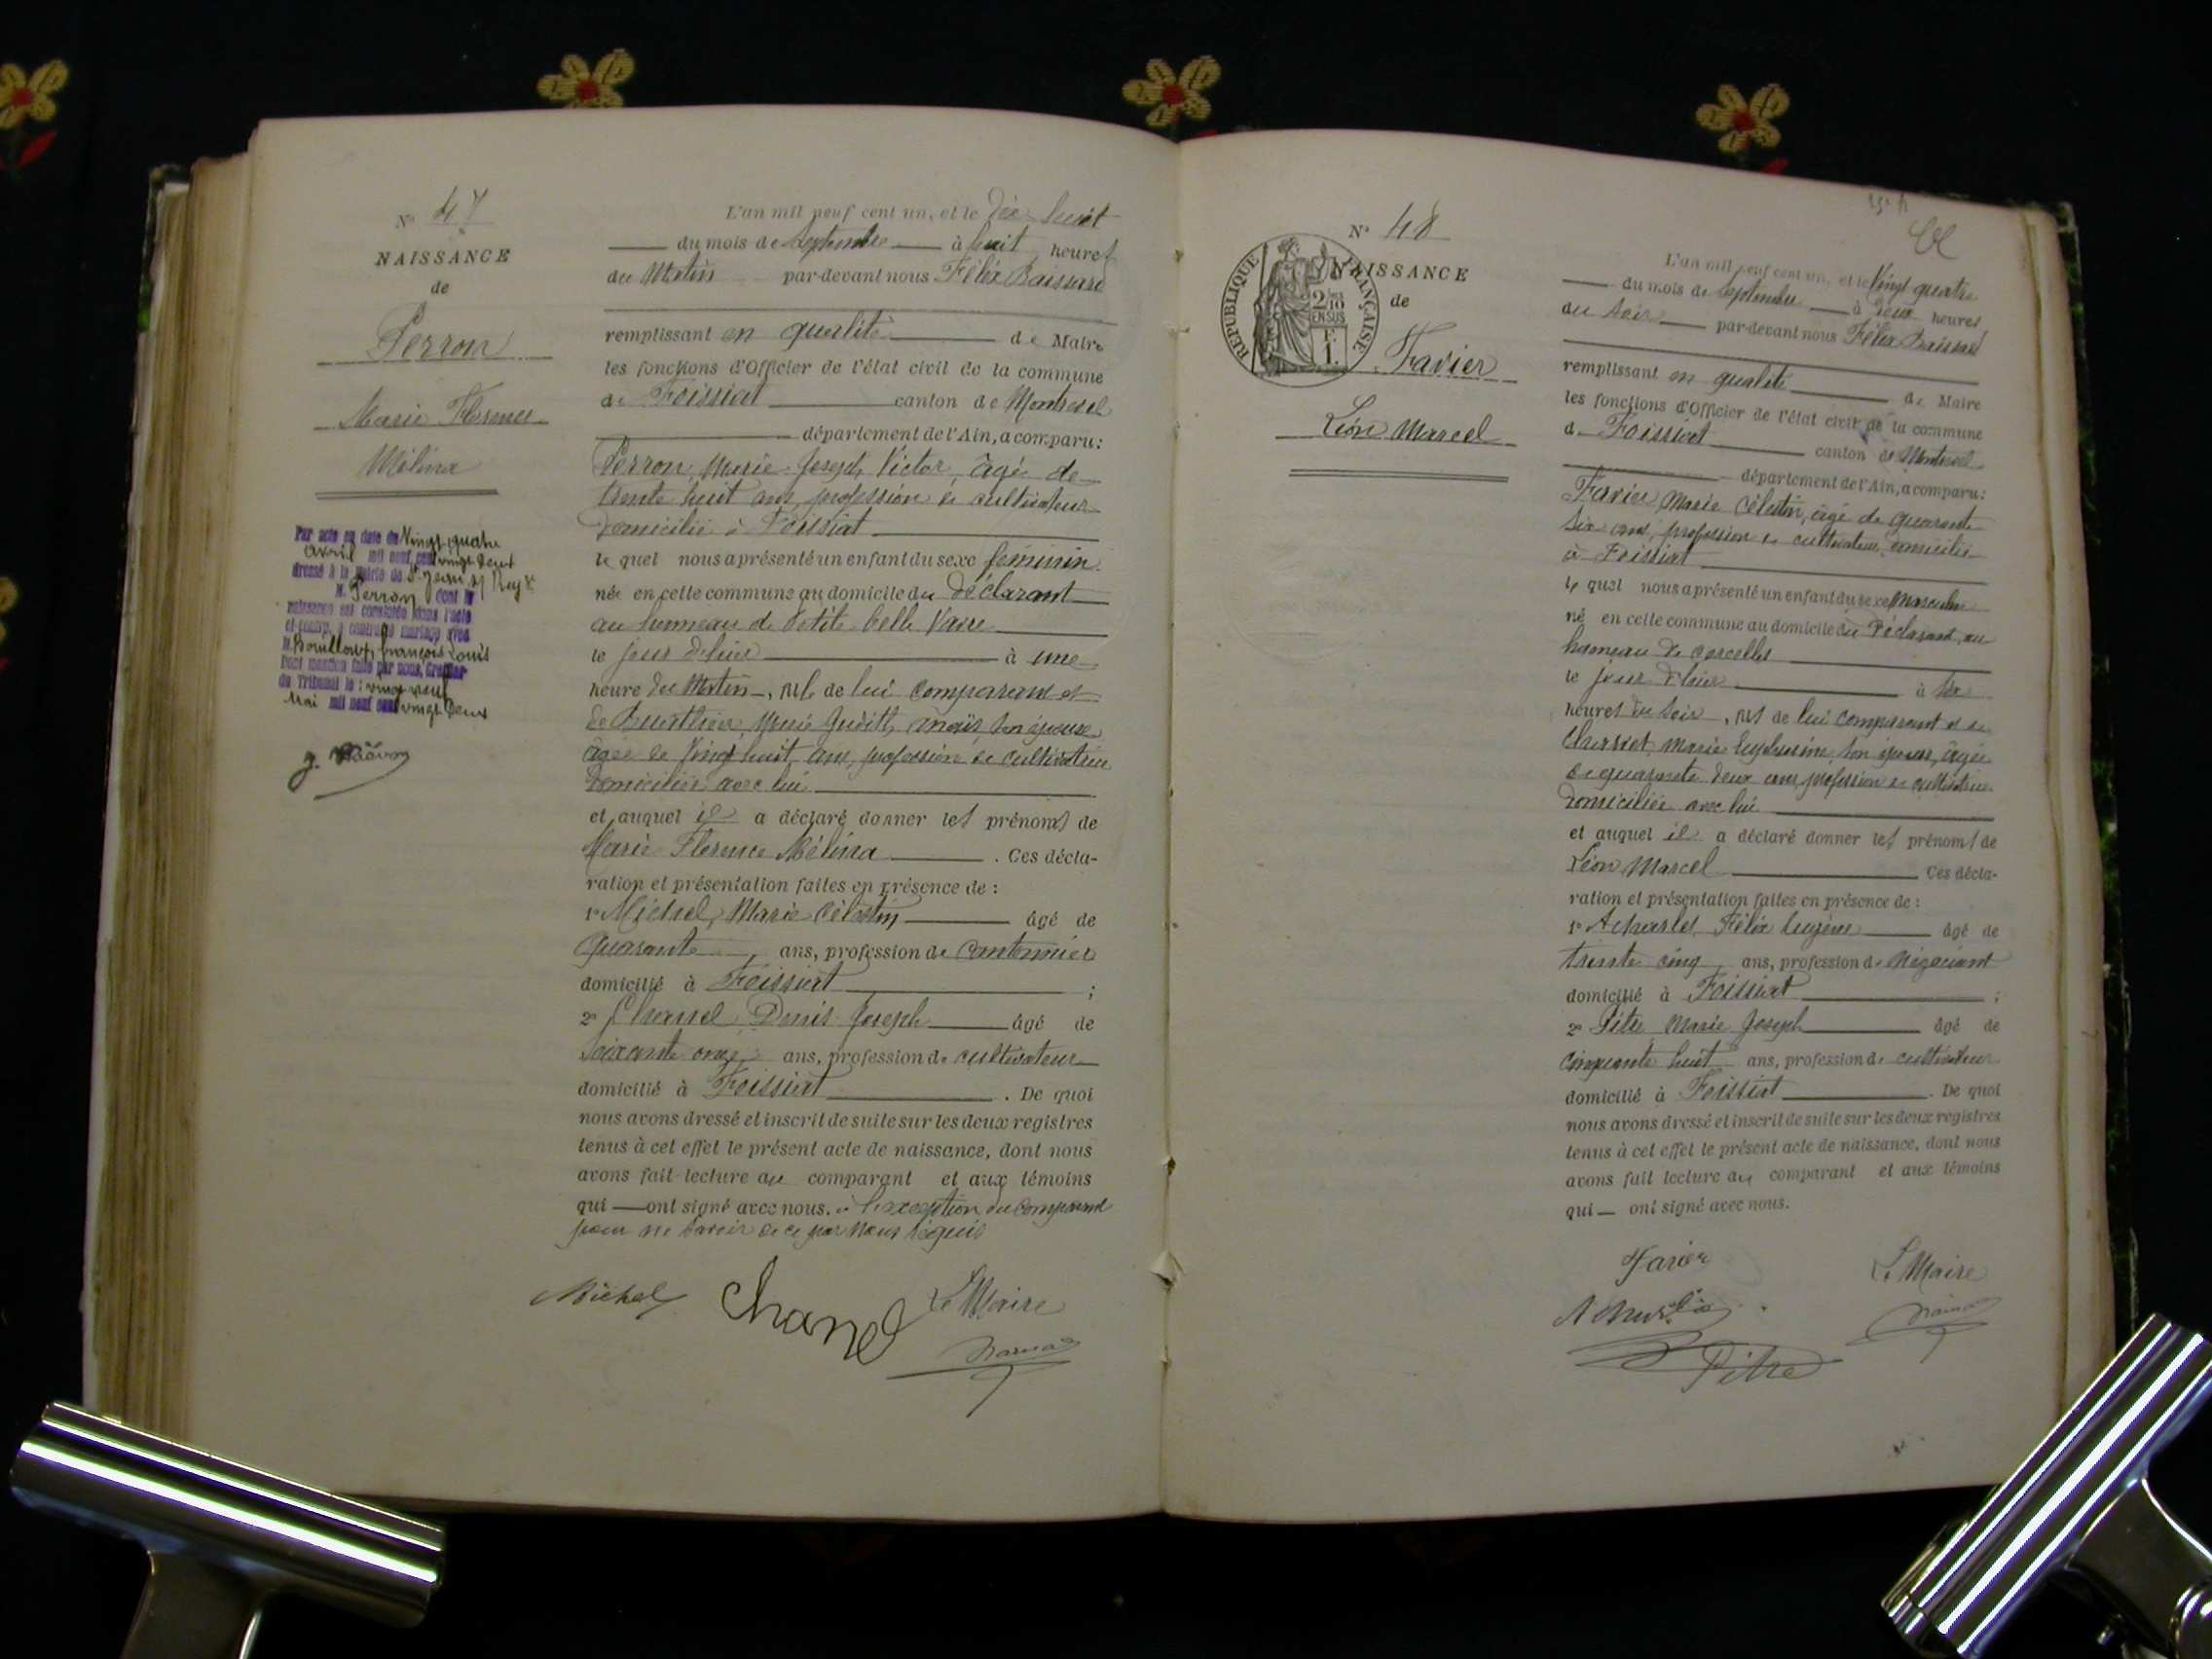 N° 47
NAISSANCE
de
Perron
Marie Florence
Mélina
Par acte en date du Vingt quatre
avril mil neuf cent vingt deux
dressé à la mairie de St Jean s/ Reyze
M. Perron dont la
naissance est constatée dans l'acte
ci-contre, a contracté mariage avec
M. Bouilloux, françois Louis
Dont mention faite par nous, Greffier
du Tribunal le : vingt neuf
Mai mil neuf cent vingt Deux
L'an mil neuf cent un, et le dix huit
du mois de Septembre à huit heures
du Matin par-devant nous Félix
remplissant en qualité de Maire
les fonctions d'Officier de l'état civil de la commune
de Foissiat canton de Montrevel
département de l'Ain, a comparu:
Perron, Marie Joseph Victor, âgé de
trente huit ans, profession de cultivateur
domicilié à Foissiat
le quel nous a présenté un enfant du sexe féminin
née en cette commune au domicile du Déclarant
au hameau de Petite Belle Vavre
le jour d'hier à une
heure du Matin, fille de lui comparant et
de Marie Judith Anaïs son épouse
âgée de Vingt huit ans, profession de cultivatrice
domiciliée avec lui
et auquel il a déclaré donner les prénoms de
Marie Florence Mélina . Ces décla-
ration et présentation faites en présence de :
1° Michel, Marie Célestin âgé de
Quarante, ans, profession de Cantonnier
domicilié à Foissiat ;
2° Chanel Denis Joseph âgé de
Soixante onze ans, profession de cultivateur
domicilié à Foissiat . De quoi
nous avons dressé et inscrit de suite sur les deux registres
tenus à cet effet le présent acte de naissance, dont nous
avons fait lecture au comparant et aux témoins
qui ont signé avec nous. à l'exception du comparant
pour ne savoir de ce par Nous requis
Michel Chanel Le Maire
N° 48
NAISSANCE
de
RÉPUBLIQUE FRANÇAISE
2/10
EN SUS
F.
1.
Favier
Léon Marcel
L'an mil neuf cent un, et le Vingt quatre
du mois de Septembre à deux heures
du Soir par-devant nous Félix
remplissant en qualité de Maire
les fonctions d'Officier de l'état civil de la commune
de Foissiat canton de Montrevel
département de l'Ain, a comparu:
Favier Marie Célestin, âgé de quarante
six ans, profession de cultivateur, domicilié
à Foissiat
le quel nous a présenté un enfant du sexe Masculin
né en cette commune au domicile du Déclarant, au
hameau de Corcelles
le jour d'hier à six
heures du Soir, fils de lui comparant et de
Marie Euphrasine, son épouse, âgée
de quarante deux ans, profession de cultivatrice
domiciliée avec lui
et auquel il a déclaré donner les prénoms de
Léon Marcel Ces décla-
ration et présentation faites en présence de :
1° Acharles Félix Eugène âgé de
trente cinq ans, profession de Négociant
domicilié à Foissiat ;
2° Pitre Marie Joseph âgé de
cinquante huit ans, profession de cultivateur
domicilié à Foissiat . De quoi
nous avons dressé et inscrit de suite sur les deux registres
tenus à cet effet le présent acte de naissance, dont nous
avons fait lecture au comparant et aux témoins
qui ont signé avec nous.
Favier Le Maire
Pitre